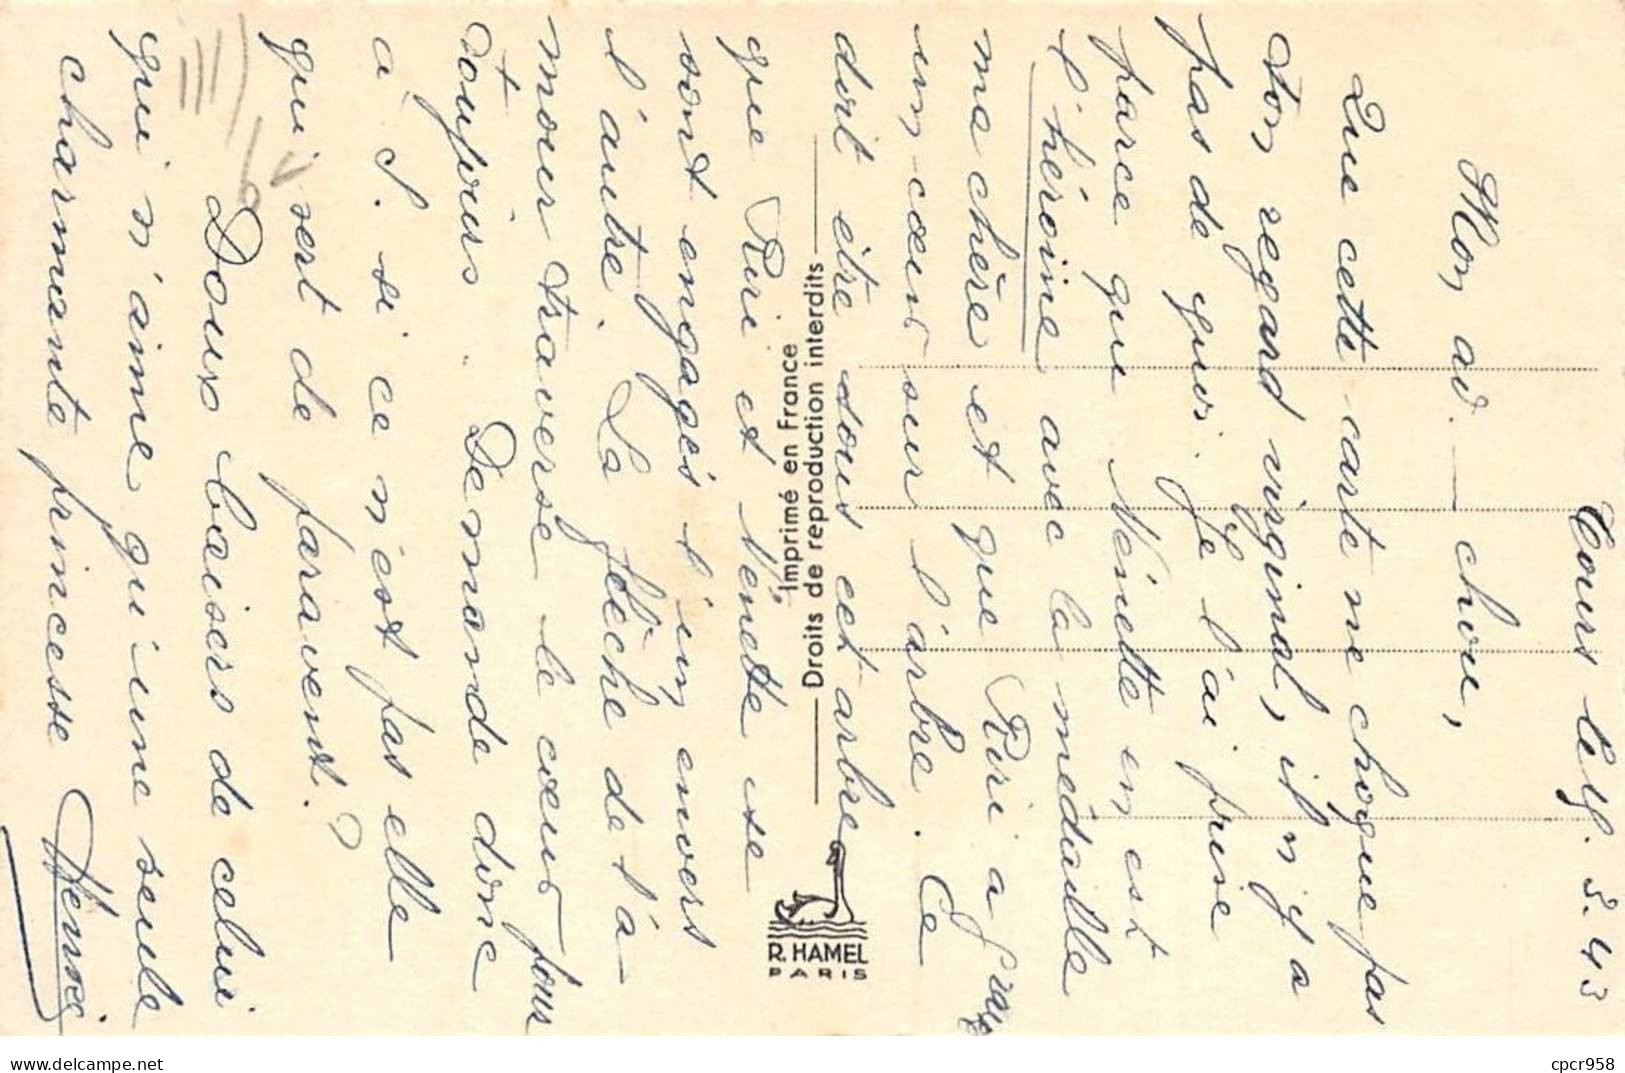 Tours le 4. 3. 43
Mon ad. — chou,
Que cette carte ne choque pas
ton regard virginal, il n'y a
pas de quoi. Je l'ai prise
parce que Nénette en est
l'héroïne avec la médaille
ma chère et que Riri a gravé
un cœur sur l'arbre. Ce
doit être sous cet arbre
que Riri et Nénette se
sont engagés l'un envers
l'autre. La flèche de l'a-
mour traverse le cœur pour
toujours. Demande donc
à S. si ce n'est pas elle
qui sert de paravent.?
Doux baisers de celui
qui n'aime qu'une seule
charmante princesse Henri
Imprimé en France
Droits de reproduction interdits
R. HAMEL
PARIS
cpcr958